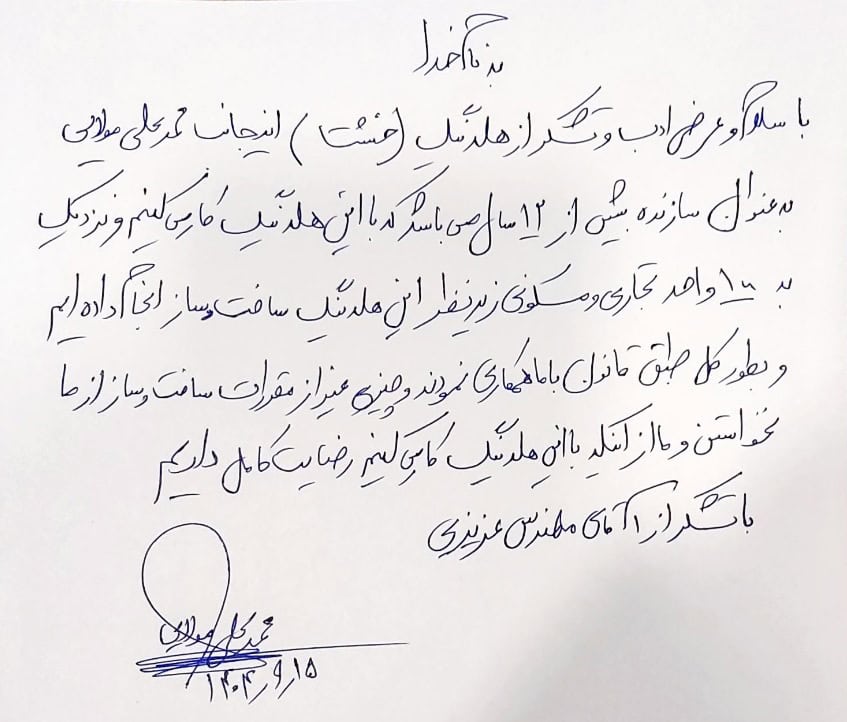 به نام خدا
با سلام و عرض ادب و تشکر از هلدینگ (خشتا) اینجانب محمدعلی مولایی
به عنوان سازنده بیش از ۱۲ سال می باشد که با این هلدینگ کار می کنیم و نزدیک
به ۱۰۰ واحد تجاری و مسکونی زیر نظر این هلدینگ ساخت و ساز انجام داده ایم
و بطور کل طبق قانون با ما همکاری نمودند و چیزی غیر از مقررات ساخت و ساز از ما
نخواستن و ما از اینکه با این هلدینگ کار می کنیم رضایت کامل داریم
با تشکر از آقای مهندس عزیزی
محمدعلی مولایی
۱۴۰۴/۹/۱۵